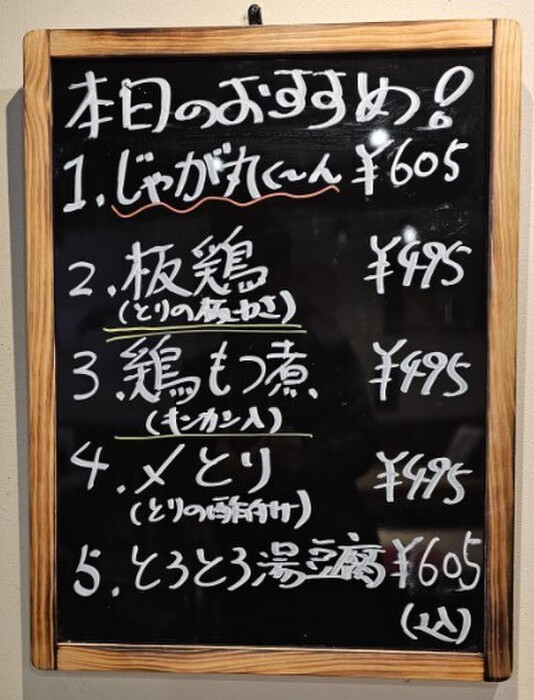 本日のおすすめ!
1. じゃが丸く~ん ¥605
2. 板鶏 ¥495
(とりの板わさ)
3. 鶏もつ煮 ¥495
(キンカン入)
4. 〆とり ¥495
(とりの酢〆)
5. とろとろ湯豆腐 ¥605
(込)